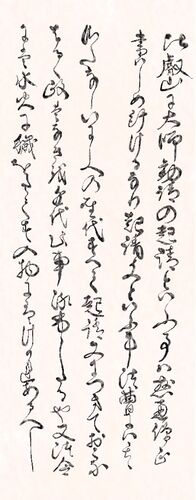 比叡山に大師勧請の起請といふ事は慈恵僧正
書はしめ給けるなり起請文といふ事法曹にはそ
のさたなしいにしへの聖代すへて起請文につきておこな
はるゝ政はなきを近代此事流布したる也又法令
には水火に穢をたてす入物にはけかれあるへし